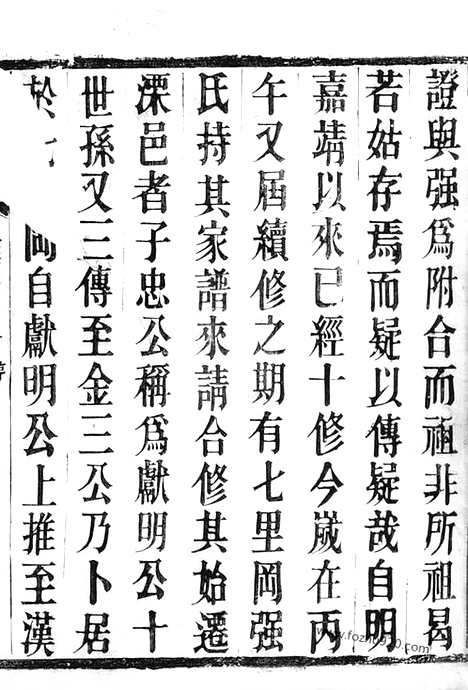 證與强爲附合而祖非所祖曷
若姑存焉而疑以傳疑哉自明
嘉靖以來已經十修今歲在丙
午又屆續修之期有七里岡强
氏持其家譜來請合修其始遷
溧邑者子忠公稱爲獻明公十
世孫又三傳至金三公乃卜居
於岡自獻明公上推至漢